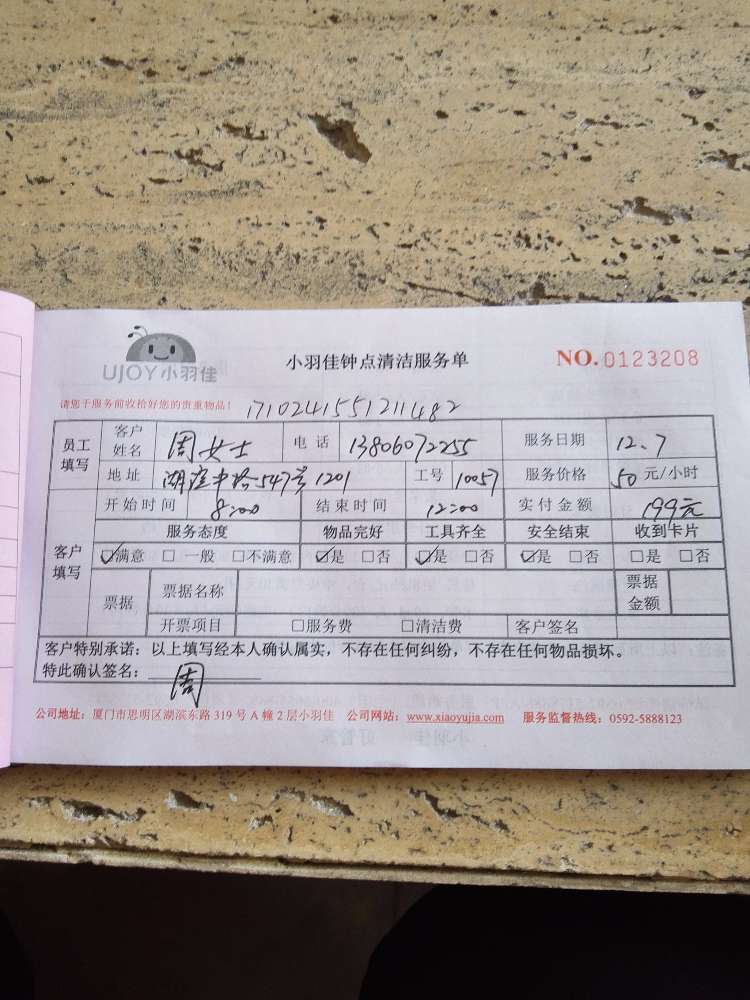 UJOY小羽佳
小羽佳钟点清洁服务单
NO.0123208
请您于服务前收拾好您的贵重物品!
1710241551211482
员工填写 客户姓名 周女士 电话 13806072255 服务日期 12.7
地址 湖滨中路547号1201 工号 10057 服务价格 50元/小时
开始时间 8:00 结束时间 12:00 实付金额 199元
客户填写 服务态度 物品完好 工具齐全 安全结束 收到卡片
☑满意 □一般 □不满意 ☑是 □否 ☑是 □否 ☑是 □否 □是 □否
票据 票据名称 票据金额
开票项目 □服务费 □清洁费 客户签名
客户特别承诺:以上填写经本人确认属实,不存在任何纠纷,不存在任何物品损坏。
特此确认签名: 周
公司地址:厦门市思明区湖滨东路 319 号 A 幢 2 层小羽佳 公司网站:www.xiaoyujia.com 服务监督热线:0592-5888123